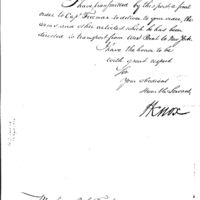 I have transmitted by this post a final
order to Capt Freeman to deliver to your order, the
arms and other articles which he has been
directed to transport from West Point to New York.
I have the honor to be
with great respect
Sir
Your obedient
Humble Servant
H Knox